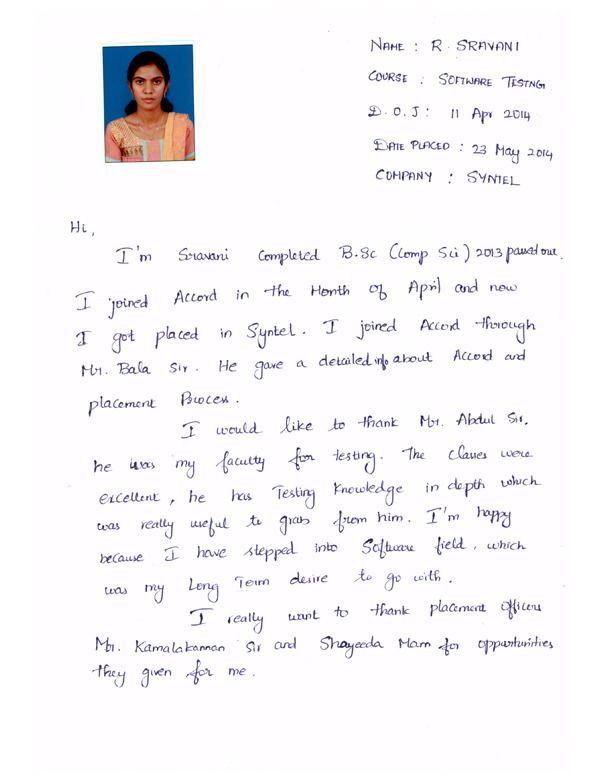 NAME : R. SRAVANI
COURSE : SOFTWARE TESTNG
D.O.J : 11 Apr 2014
DATE PLACED : 23 May 2014
COMPANY : SYNTEL
Hi,
I'm Sravani Completed B.Sc (Comp Sci) 2013 passed out.
I joined Accord in the Month of April and now
I got placed in Syntel. I joined Accord through
Mr. Bala Sir. He gave a detailed info about Accord and
placement Process.
I would like to thank Mr. Abdul Sir.
he was my faculty for testing. The Classes were
excellent, he has Testing Knowledge in depth which
was really useful to grab from him. I'm happy
because I have stepped into Software field, which
was my Long Term desire to go with.
I really want to thank placement officers
Mr. Kamalakannan Sir and Shayeeda Mam for oppurtunities
they given for me.